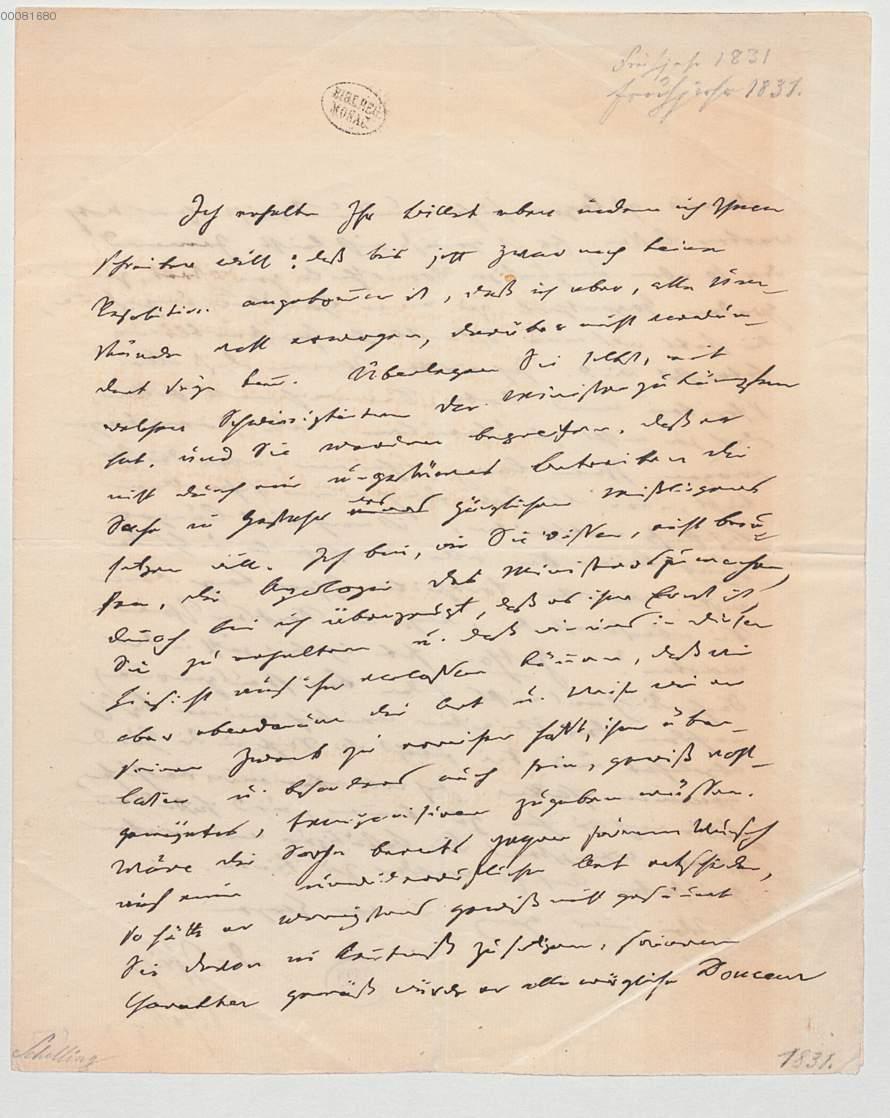 00081680
Frühjahr 1831
Frühjahr 1831.
BIBL. REG.
MONAC.
Ich erhalte Ihr Billet eben indem ich Ihnen
schreiben will: daß bis jetzt zwar noch keine
Resolution angekommen ist, daß ich aber, alle Um-
stände wohl erwogen, darüber nicht verwun-
dert seyn kann. Überlegen Sie selbst, mit
welchen Schwierigkeiten der Minister zu kämpfen
hat, und Sie werden begreifen, daß er
nicht durch ein ungestümes betreiben die
Sache in Gefahr des gänzlichen Mißlingens
setzen will. Ich bin, wie Sie wissen, nicht beru-
fen, die Apologie des Ministers zu machen,
dennoch bin ich überzeugt, daß es ihm Ernst ist,
Sie zu erhalten u. daß wir uns in dieser
Hinsicht auf ihn verlassen können, daß wir
aber ebendarum die Art u. Weise wie er
seinen Zweck zu erreichen hofft, ihm über-
lassen u. besonders auch sein, gewiß
zugeben müssen.
Wäre die Sache bereits gegen seinen Wunsch
auf eine unwiderrufliche Art entschieden,
so hätte er wenigstens gewiß nicht gesäumt
Sie davon in Kenntniß zu setzen, seinem
Charakter gemäß würde er alle mögliche Douceur
Schelling
1831.